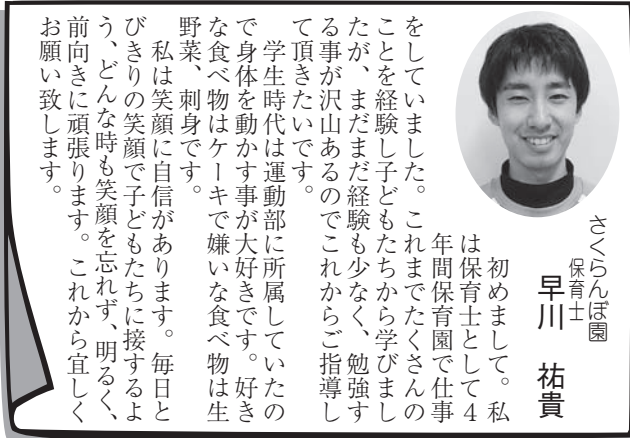 さくらんぼ園
保育士
早川　祐貴
　初めまして。私
は保育士として４
年間保育園で仕事
をしていました。これまでたくさんの
ことを経験し子どもたちから学びまし
たが、まだまだ経験も少なく、勉強す
る事が沢山あるのでこれからご指導し
て頂きたいです。
　学生時代は運動部に所属していたの
で身体を動かす事が大好きです。好き
な食べ物はケーキで嫌いな食べ物は生
野菜、刺身です。
　私は笑顔に自信があります。毎日と
びきりの笑顔で子どもたちに接するよ
う、どんな時も笑顔を忘れず、明るく、
前向きに頑張ります。これから宜しく
お願い致します。